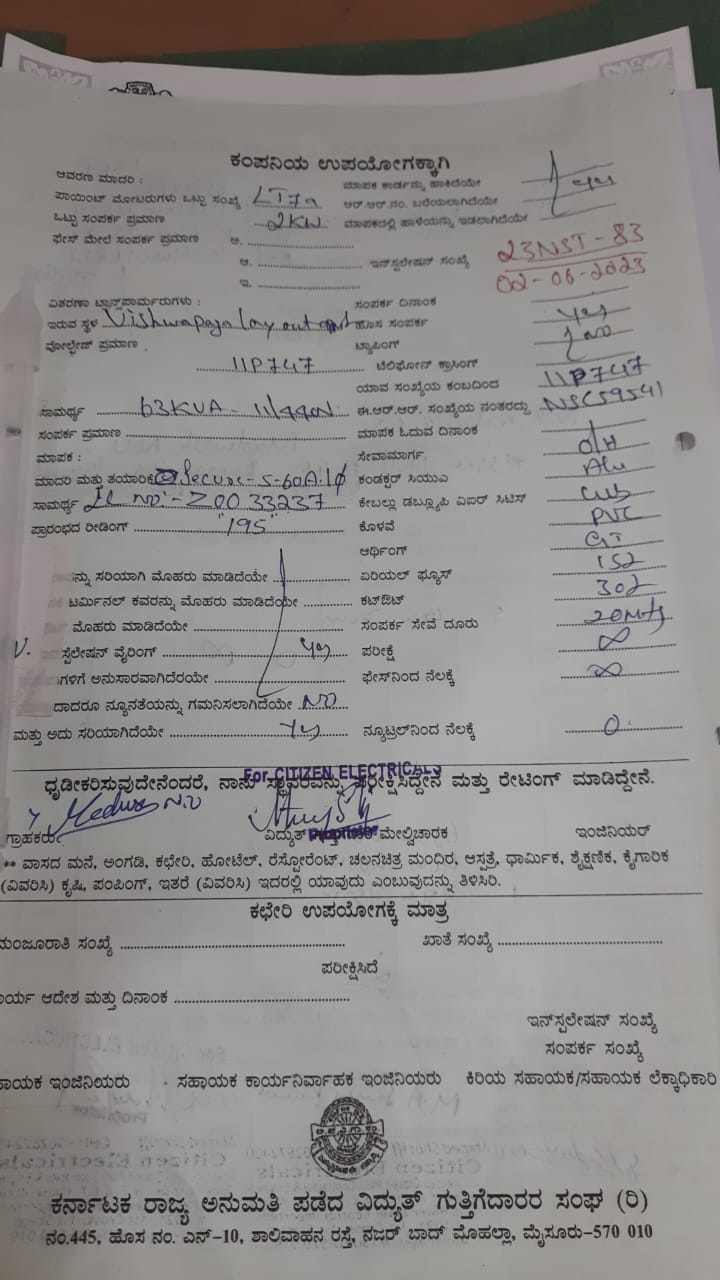 ಕಂಪನಿಯ ಉಪಯೋಗಕ್ಕಾಗಿ
ಆವರಣ ಮಾದರಿ : ಮಾಪಕ ಕಾರ್ಡನ್ನು ಹಾಕಿದೆಯೇ
ಪಾಯಿಂಟ್ ಮೋಟರುಗಳು ಒಟ್ಟು ಸಂಖ್ಯೆ LT7a ಆರ್.ಆರ್.ನಂ. ಬರೆಯಲಾಗಿದೆಯೇ yes
ಒಟ್ಟು ಸಂಪರ್ಕ ಪ್ರಮಾಣ 2KW ಮಾಪಕದಲ್ಲಿ ಹಾಳೆಯನ್ನು ಇಡಲಾಗಿದೆಯೇ
ಫೇಸ್ ಮೇಲೆ ಸಂಪರ್ಕ ಪ್ರಮಾಣ ಅ.
ಆ. ಇನ್‌ಸ್ಪಲೇಷನ್ ಸಂಖ್ಯೆ 23NST-83
ಇ. 02-06-2023
ವಿತರಣಾ ಟ್ರಾನ್ಸ್‌ಫಾರ್ಮರುಗಳು : ಸಂಪರ್ಕ ದಿನಾಂಕ
ಇರುವ ಸ್ಥಳ Vishwapaja layout ಹೊಸ ಸಂಪರ್ಕ yes
ವೋಲ್ಟೇಜ್ ಪ್ರಮಾಣ ಟ್ಯಾಪಿಂಗ್ No
11P747 ಟೆಲಿಫೋನ್ ಕ್ರಾಸಿಂಗ್
ಯಾವ ಸಂಖ್ಯೆಯ ಕಂಬದಿಂದ 11P747
ಸಾಮರ್ಥ್ಯ 63KVA-11/440V ಈ.ಆರ್.ಆರ್. ಸಂಖ್ಯೆಯ ನಂತರದ್ದು NSC59541
ಸಂಪರ್ಕ ಪ್ರಮಾಣ ಮಾಪಕ ಓದುವ ದಿನಾಂಕ
ಮಾಪಕ : ಸೇವಾಮಾರ್ಗ O/H
ಮಾದರಿ ಮತ್ತು ತಯಾರಿಕೆ Secure-5-60A.1Ø ಕಂಡಕ್ಟರ್ ಸಿಯುಎ Alu
ಸಾಮರ್ಥ್ಯ Sl no:-Z0033237 ಕೇಬಲ್ಲು ಡಬ್ಲ್ಯೂಪಿ ಎಐರ್ ಸಿಟಿಸ್ Cub
ಪ್ರಾರಂಭದ ರೀಡಿಂಗ್ "195" ಕೊಳವೆ PVC
ಆರ್ಥಿಂಗ್ GI
ನ್ನು ಸರಿಯಾಗಿ ಮೊಹರು ಮಾಡಿದೆಯೇ ಏರಿಯಲ್ ಫ್ಯೂಸ್ 152
ಟರ್ಮಿನಲ್ ಕವರನ್ನು ಮೊಹರು ಮಾಡಿದೆಯೇ ಕಟ್‌ಔಟ್ 302
ಮೊಹರು ಮಾಡಿದೆಯೇ ಸಂಪರ್ಕ ಸೇವೆ ದೂರು 20Mts
ಸ್ಟಲೇಷನ್ ವೈರಿಂಗ್ yes ಪರೀಕ್ಷೆ ∞
ಗಳಿಗೆ ಅನುಸಾರವಾಗಿದೆರಯೇ ಫೇಸ್‌ನಿಂದ ನೆಲಕ್ಕೆ ∞
ದಾದರೂ ನ್ಯೂನತೆಯನ್ನು ಗಮನಿಸಲಾಗಿದೆಯೇ NO
ಮತ್ತು ಅದು ಸರಿಯಾಗಿದೆಯೇ Yes ನ್ಯೂಟ್ರಲ್‌ನಿಂದ ನೆಲಕ್ಕೆ 0
For CITIZEN ELECTRICALS
ಧೃಡೀಕರಿಸುವುದೇನೆಂದರೆ, ನಾನು ಸ್ಥಾವರವನ್ನು ಪರೀಕ್ಷಿಸಿದ್ದೇನೆ ಮತ್ತು ರೇಟಿಂಗ್ ಮಾಡಿದ್ದೇನೆ.
ಗ್ರಾಹಕರು ವಿದ್ಯುತ್ ಮೇಲ್ವಿಚಾರಕ ಇಂಜಿನಿಯರ್
** ವಾಸದ ಮನೆ, ಅಂಗಡಿ, ಕಛೇರಿ, ಹೋಟೆಲ್, ರೆಸ್ಟೋರೆಂಟ್, ಚಲನಚಿತ್ರ ಮಂದಿರ, ಆಸ್ಪತ್ರೆ, ಧಾರ್ಮಿಕ, ಶೈಕ್ಷಣಿಕ, ಕೈಗಾರಿಕ
(ವಿವರಿಸಿ) ಕೃಷಿ, ಪಂಪಿಂಗ್, ಇತರೆ (ವಿವರಿಸಿ) ಇದರಲ್ಲಿ ಯಾವುದು ಎಂಬುವುದನ್ನು ತಿಳಿಸಿರಿ.
ಕಛೇರಿ ಉಪಯೋಗಕ್ಕೆ ಮಾತ್ರ
ಮಂಜೂರಾತಿ ಸಂಖ್ಯೆ ಖಾತೆ ಸಂಖ್ಯೆ
ಪರೀಕ್ಷಿಸಿದೆ
ಾರ್ಯ ಆದೇಶ ಮತ್ತು ದಿನಾಂಕ
ಇನ್‌ಸ್ಪಲೇಷನ್ ಸಂಖ್ಯೆ
ಸಂಪರ್ಕ ಸಂಖ್ಯೆ
ಹಾಯಕ ಇಂಜಿನಿಯರು ಸಹಾಯಕ ಕಾರ್ಯನಿರ್ವಾಹಕ ಇಂಜಿನಿಯರು ಕಿರಿಯ ಸಹಾಯಕ/ಸಹಾಯಕ ಲೆಕ್ಕಾಧಿಕಾರಿ
ಕರ್ನಾಟಕ ರಾಜ್ಯ ಅನುಮತಿ ಪಡೆದ ವಿದ್ಯುತ್ ಗುತ್ತಿಗೆದಾರರ ಸಂಘ (ರಿ)
ನಂ.445, ಹೊಸ ನಂ. ಎನ್-10, ಶಾಲಿವಾಹನ ರಸ್ತೆ, ನಜರ್ ಬಾದ್ ಮೊಹಲ್ಲಾ, ಮೈಸೂರು-570 010